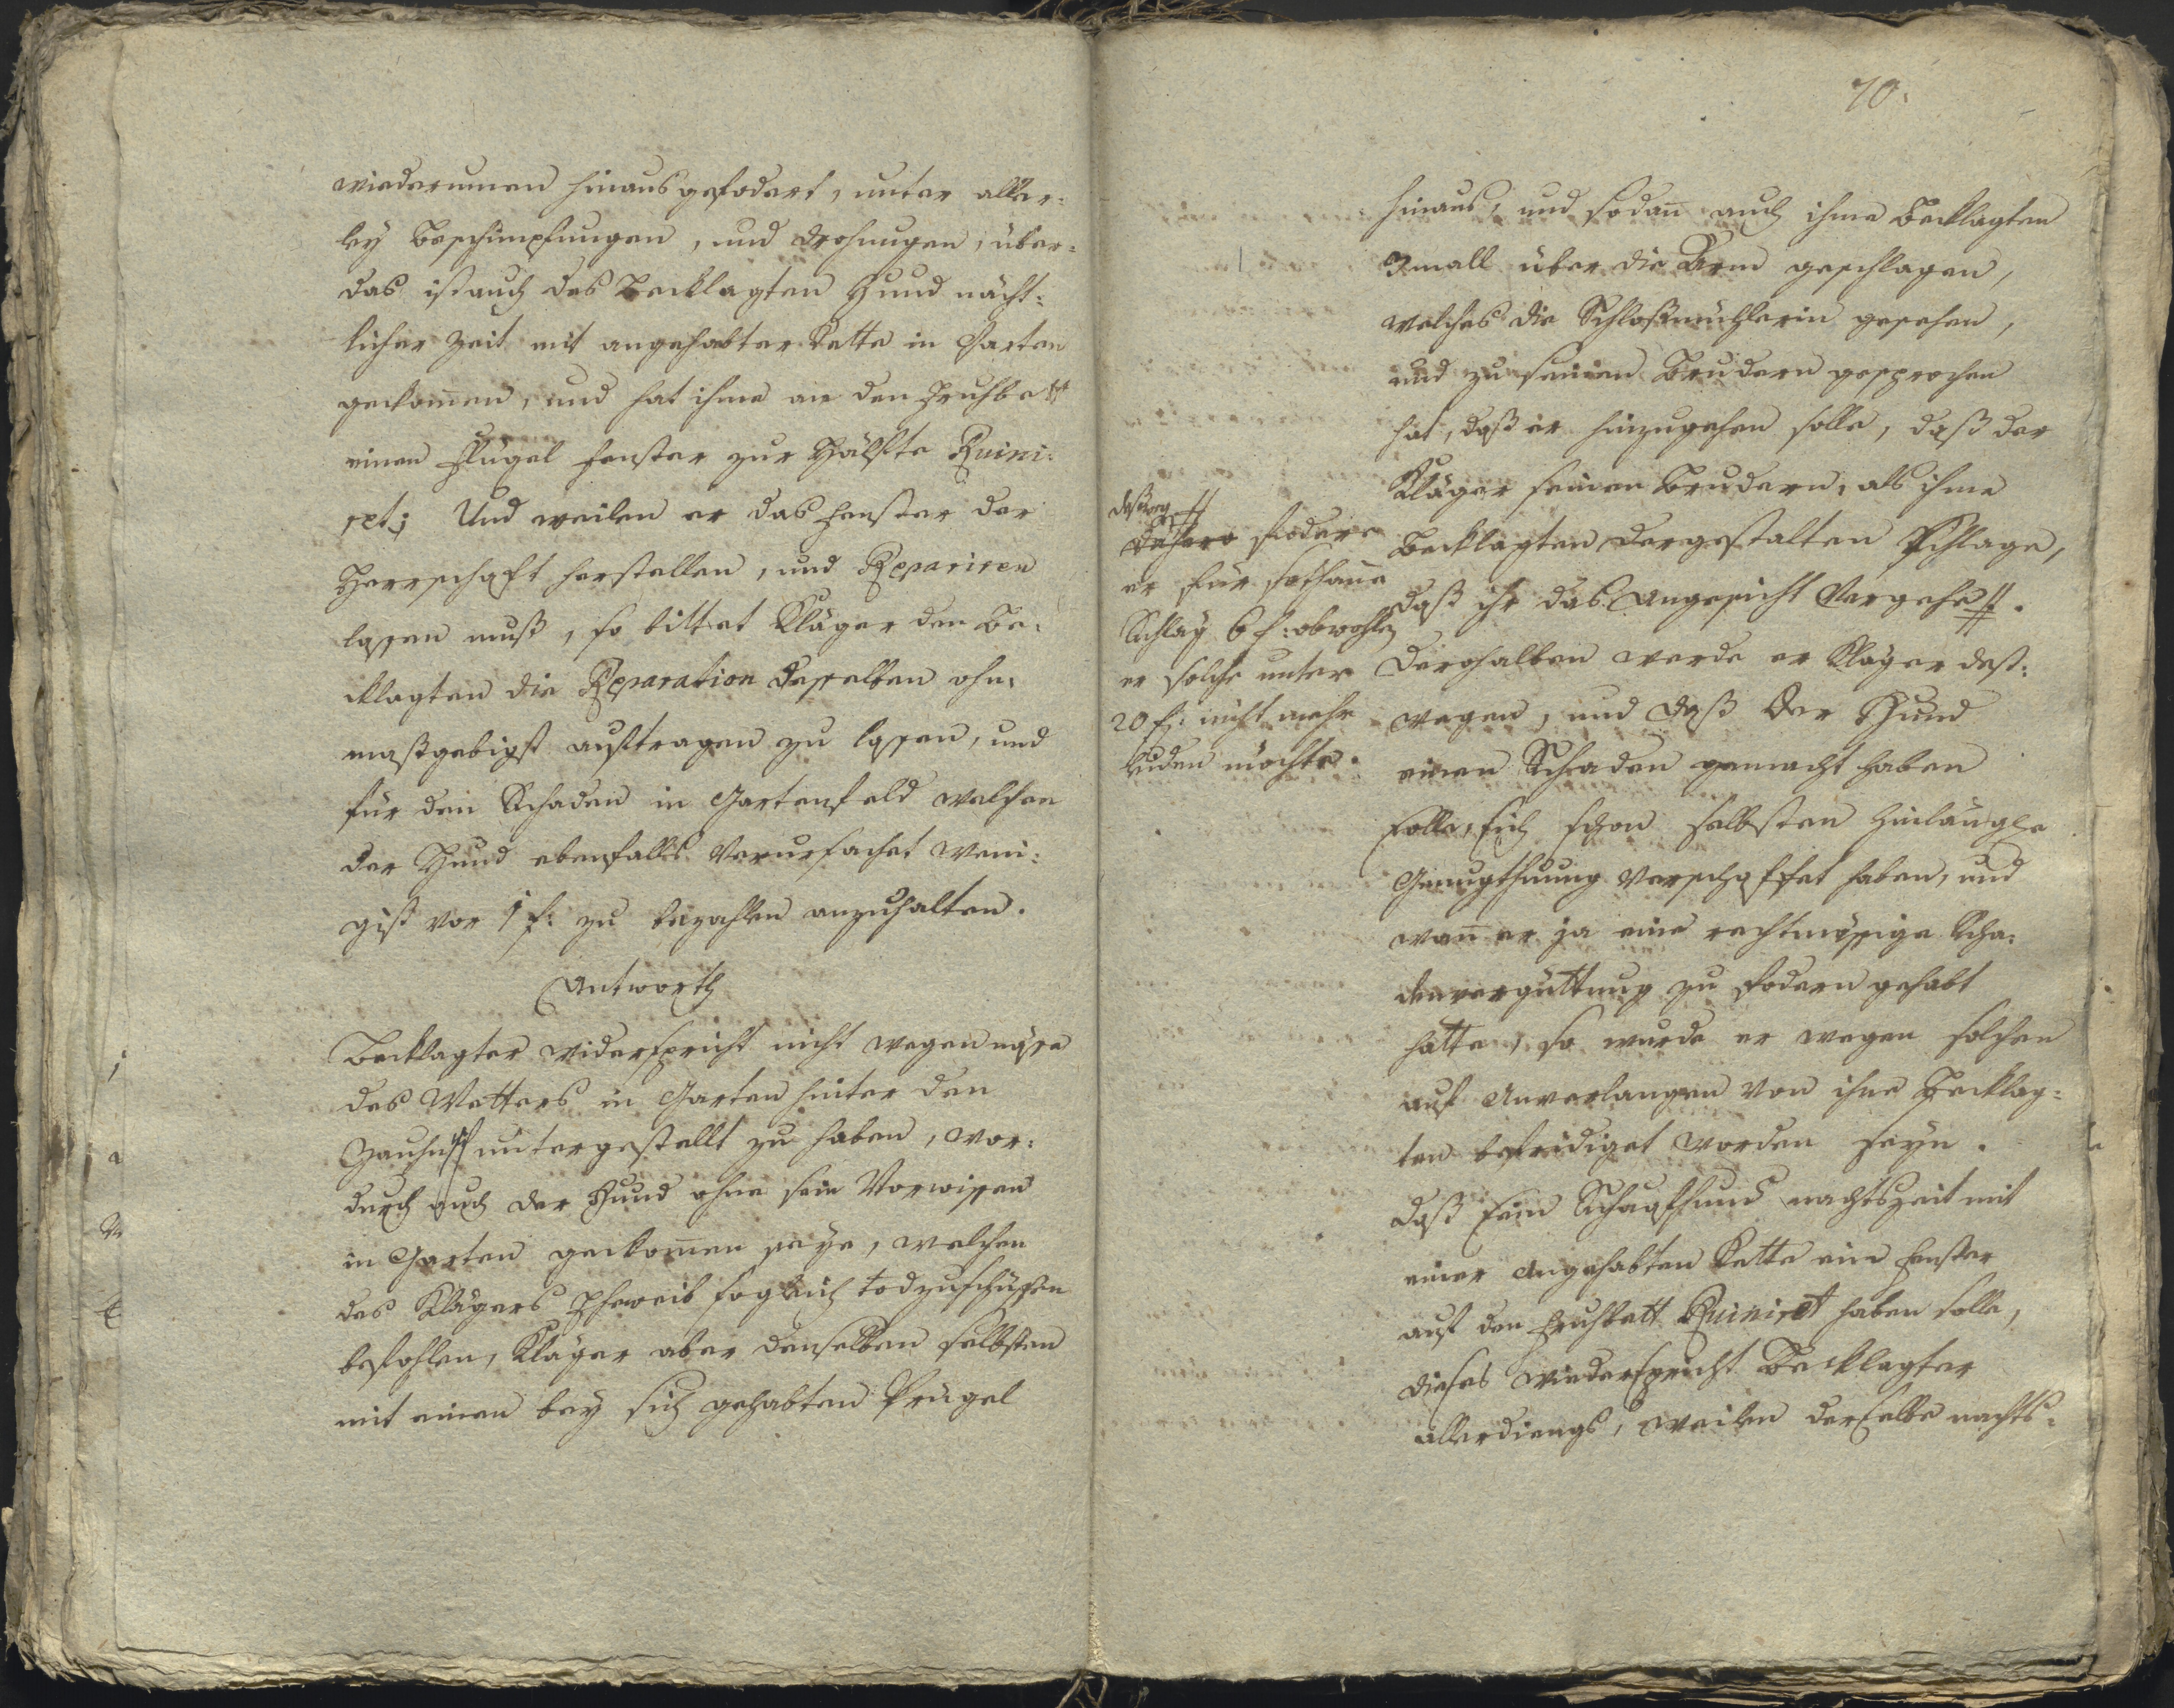 wiederumen hinausgefodert, unter aller-
ley Beschimpfungen, und Drohungen, über-
das ist auch des Becklagten Hund nächt-
licher Zeit mit angehabter Kette in Garten
gekom̄en, und hat ihme an den Fruhbett
einen Flügel Fenster zur Hälfte Ruini-
ret; Und weilen er das Fenster der
Herrschaft herstellen, und Repariren
lassen muß, so bittet Kläger den Be-
cklagten die Reparation desselben ohn-
maßgebigst auftragen zu lassen, und
für den Schaden in Gartenfeld welchen
der Hund ebenfalls verursachet weni-
gist vor 1 f: zu bezahlen anzuhalten.
Antworth
Becklagter widerspricht nicht wegen nässe
des Wetters in Garten hinter den
untergestellt zu haben, wor-
durch auch der Hund ohne sein Vorwissen
in Garten gekom̄en seye, welchen
des Klägers Eheweib sogleich todzuschüssen
befohlen, Kläger aber denselben selbsten
mit einen bey sich gehabten Prügel
70.
hinaus, und sodan̄ auch ihme Becklagten
3mall über die Arm geschlagen,
welches die Schloßmüllerin gesehen,
und zu seinen Brudern gesprochen
hat, daß er hinzugehen solle, daß der
Kläger seinen Brudern, als ihme
Becklagten dergestalten Schlage,
daß ihr das Angesicht Vergehe #.
Derohalben werde er Kläger deß-
wegen, und daß der Hund
einen Schaden gemacht haben
solle, sich schon selbsten hinlängle
Genugthuung verschaffet haben, und
wan̄ er ja eine rechtmässige Scha-
denvergüttung zu fodern gehabt
hatte, so wurde er wegen solchen
auf Anverlangen von ihme Becklag-
ten befridiget worden seyn.
Daß sein Schaafhund nachtszeit mit
einer angehabten Kette ein Fenster
auf den Fruhbett Ruiniret haben solle,
dieses wiederspricht Becklagter
allerdiengs, weilen derselbe nachts-
deßweg #
dahero fodere
er für sothane
Schläg 6 f: obwohlen
er solche unter
20 f: nicht mehr
leiden möchte.